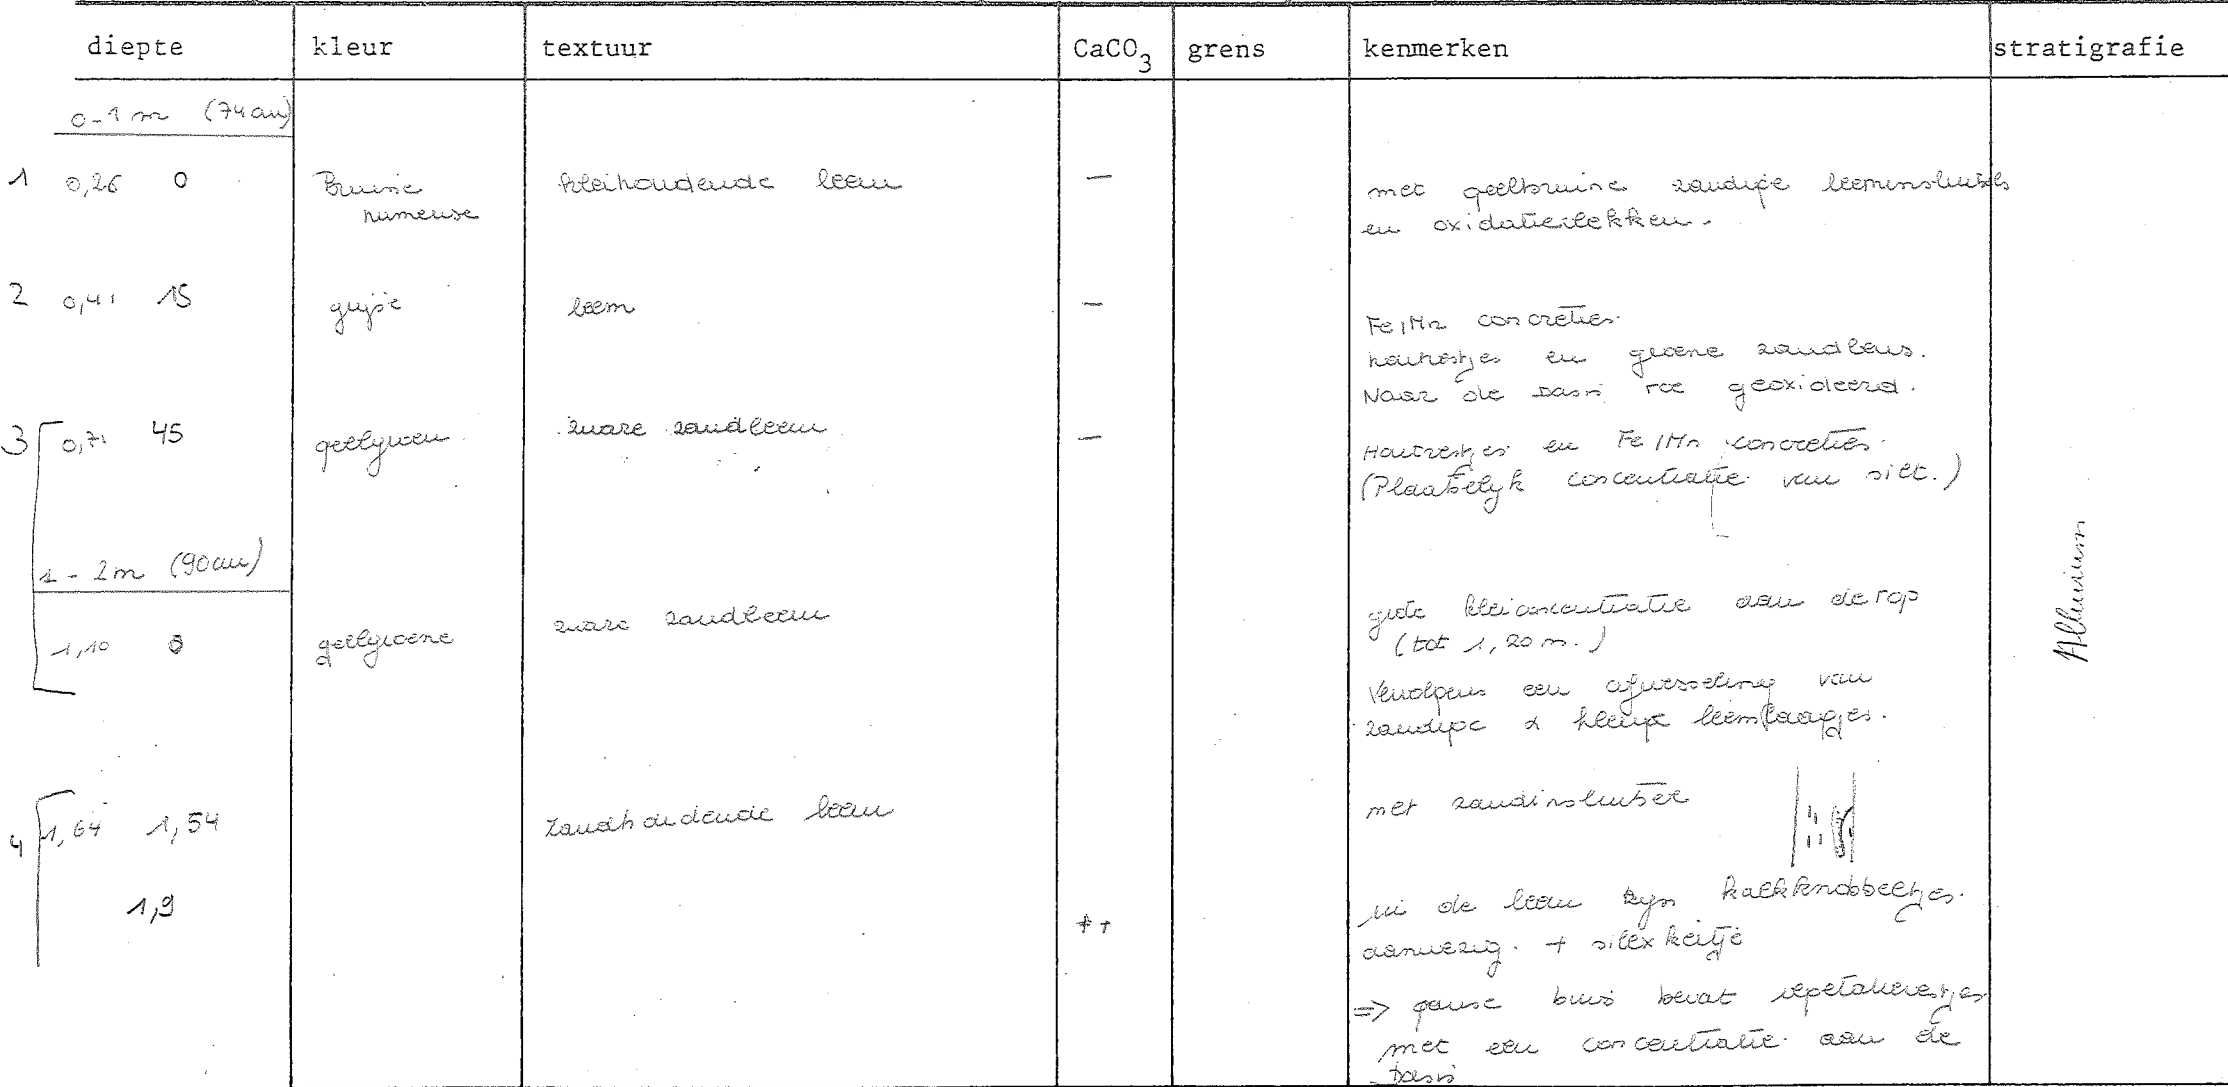 diepte kleur textuur CaCO3 grens kenmerken stratigrafie
0-1 m (74cm)
1 0,26 0 Bruine kleihoudende leem — met geelbruine zandige leeminsluitsels
humeuse en oxidatievlekken.
2 0,41 15 grijze leem — Fe/Mn concreties
houtrestjes en groene zandlens.
Naar de basis toe geoxideerd.
3 0,71 45 geelgroen zware zandleem — Houtrestjes en Fe/Mn concreties.
(Plaatselijk concentratie van silt.)
1-2m (90cm)
1,10 0 geelgroene zware zandleem grote kleiconcentratie aan de top
(tot 1,20 m.)
Vervolgens een afwisseling van
zandige & kleiige leemlaagjes.
Alluvium
4 1,64 1,54 Zandhoudende leem met zandinsluitsel
1,9 ++ in de leem zijn kalkknobbeltjes
aanwezig. + silexkeitje
=> ganse buis bevat vegetatierestjes
met een concentratie aan de
basis